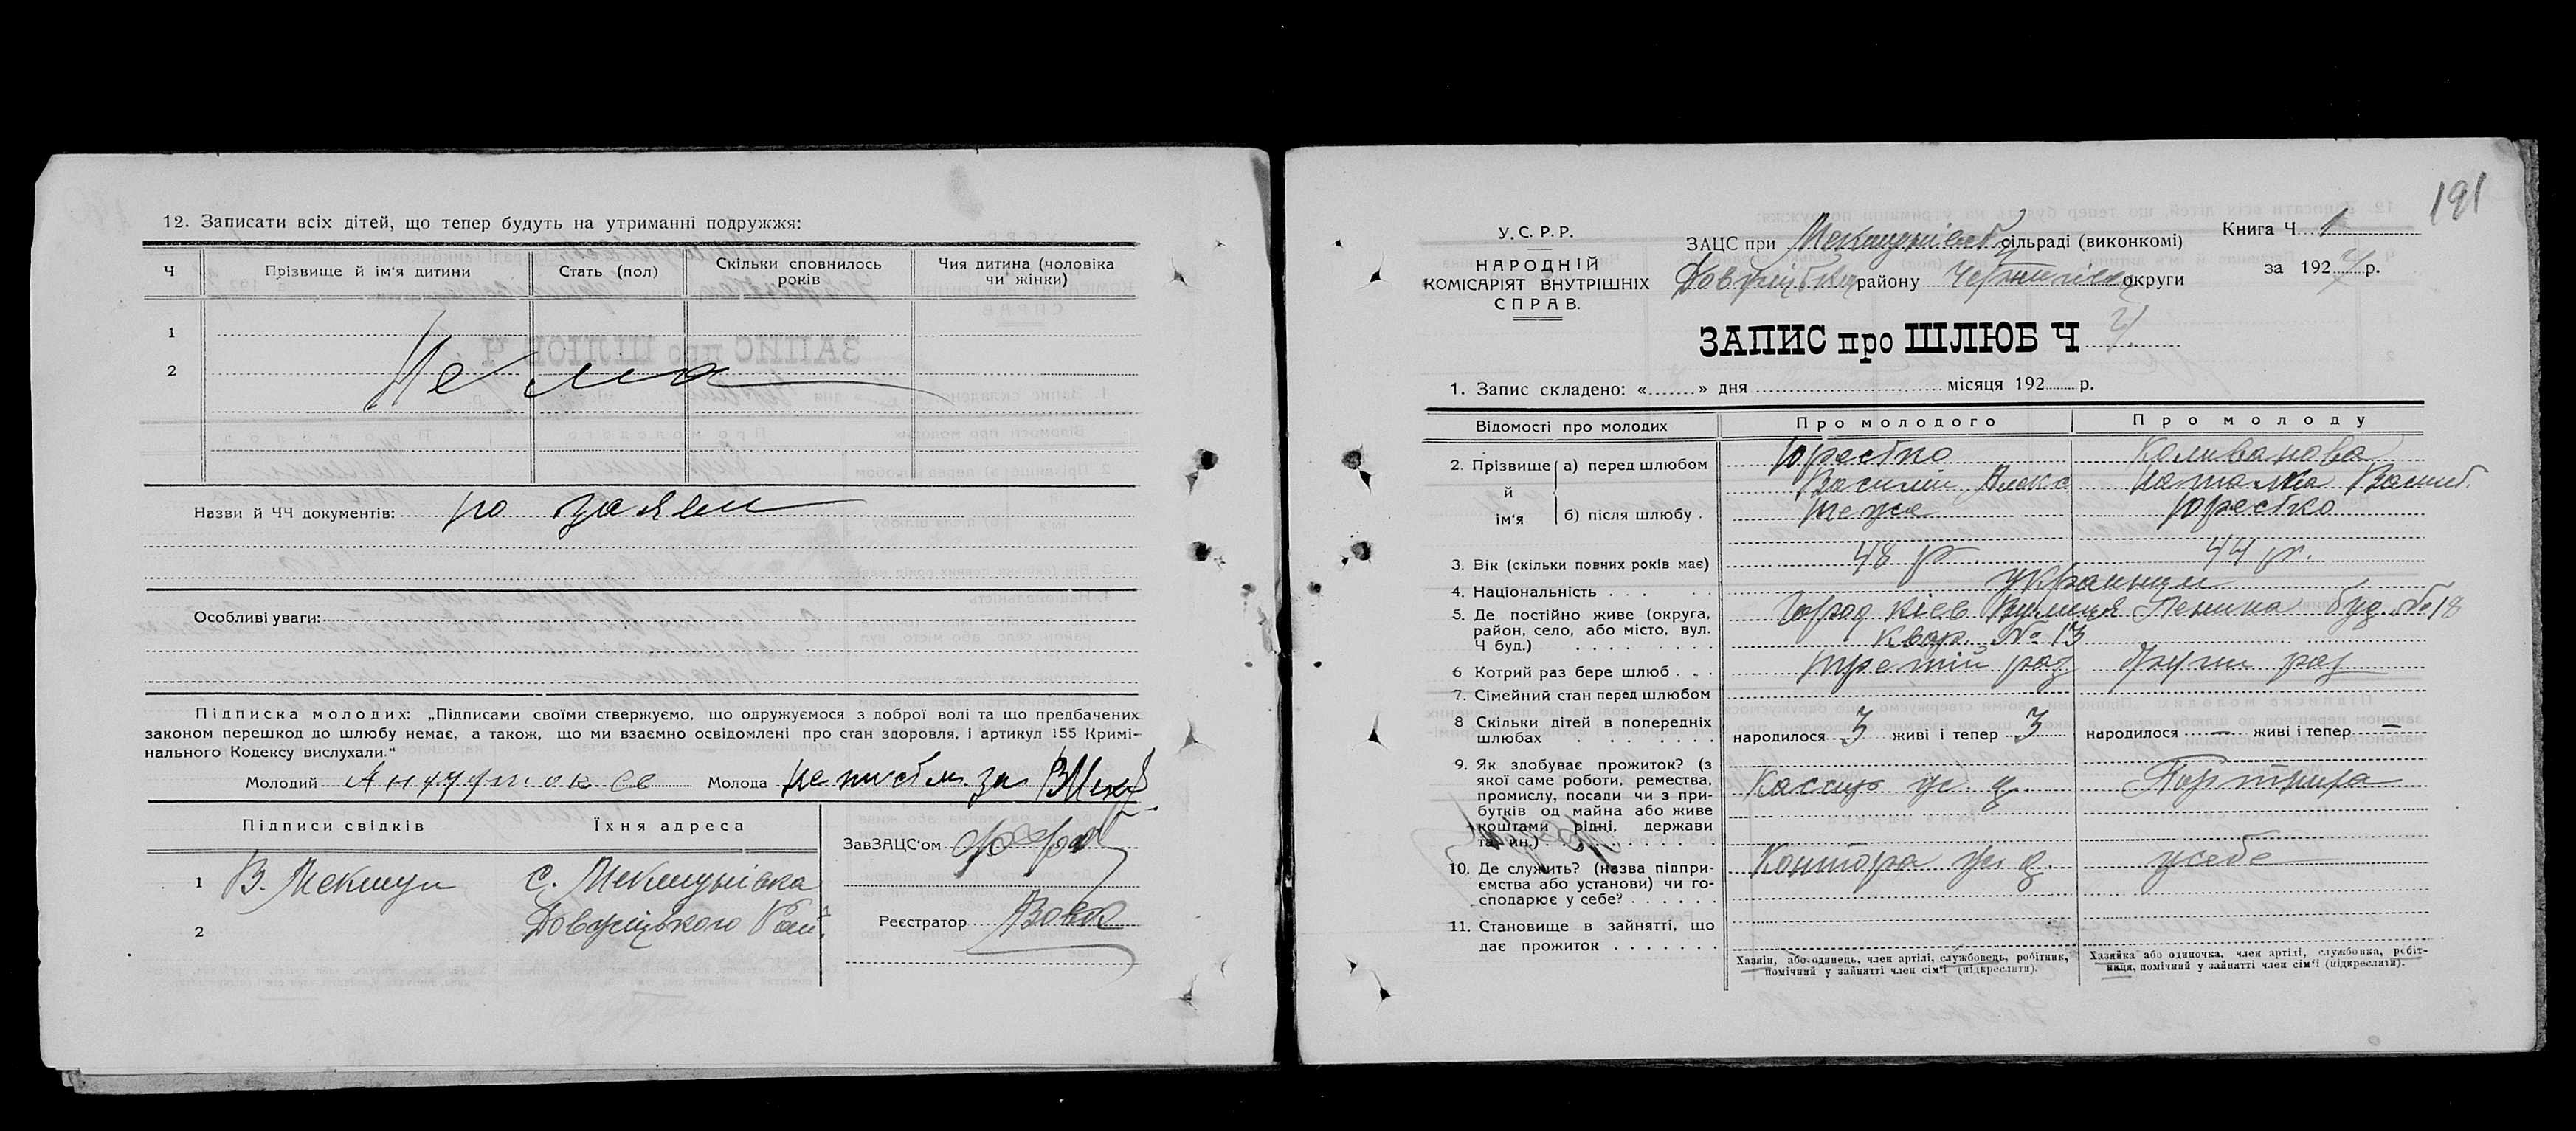 12. Записати всіх дітей, що тепер будуть на утриманні подружжя:
Ч Прізвище й ім'я дитини Стать (пол) Скільки сповнилось років Чия дитина (чоловіка чи жінки)
1
2
Нема
Назви й ЧЧ документів: по заяви
Особливі уваги:
Підписка молодих: „Підписами своїми стверджуємо, що одружуємося з доброї волі та що предбачених
законом перешкод до шлюбу немає, а також, що ми взаємно освідомлені про стан здоровля, і артикул 155 Кримі-
нального Кодексу вислухали."
Молодий Молода за
Підписи свідків Їхня адреса
1 В. Мекшун с. Мекшунівка
2 Довжицького Рай.
ЗавЗАЦС'ом
Реєстратор
191
У.С.Р.Р.
НАРОДНІЙ
КОМІСАРІЯТ ВНУТРІШНІХ
СПРАВ.
ЗАЦС при Мекшунівс сільраді (виконкомі)
району округи
Книга Ч 1
за 192 р.
ЗАПИС про ШЛЮБ Ч
1. Запис складено: « » дня місяця 192 р.
Відомості про молодих Про молодого Про молоду
2. Прізвище й ім'я а) перед шлюбом Коливанова
Василій Алекс Наталка Василь.
б) після шлюбу
3. Вік (скільки повних років має) 48 р. 44 р.
4. Національність украинци
5. Де постійно живе (округа, район, село, або місто, вул. Ч буд.) Город Киев вулиця Ленина буд. №18
квар. № 13
6 Котрий раз бере шлюб третій раз други раз
7. Сімейний стан перед шлюбом
8 Скільки дітей в попередніх шлюбах народилося 3 живі і тепер 3 народилося — живі і тепер —
9. Як здобуває прожиток? (з якої саме роботи, ремества, промислу, посади чи з прибутків од майна або живе коштами рідні, держави та ин.) Кассир
10. Де служить? (назва підприємства або установи) чи господарює у себе? Контора у себе
11. Становище в зайнятті, що дає прожиток
Хазяїн, або одинець, член артілі, службовець, робітник,
помічний у зайнятті член сім'ї (підкреслити).
Хазяйка або одиночка, член артілі, службовка, робіт-
ниця, помічний у зайнятті член сім'ї (підкреслити).